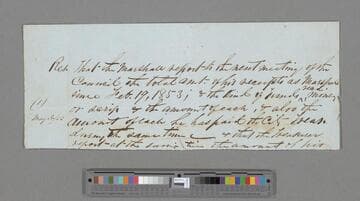 Res. That the Marshall report to the next meeting of the
Council the total amt. of his receipts as Marshall
since Feb. 19, 1853; & the kind of funds, Money
or scrip & the amount of each, & also the
amount of each he has paid the City Treas
during the same time & that the Treasurer
report at the same time the amount of his